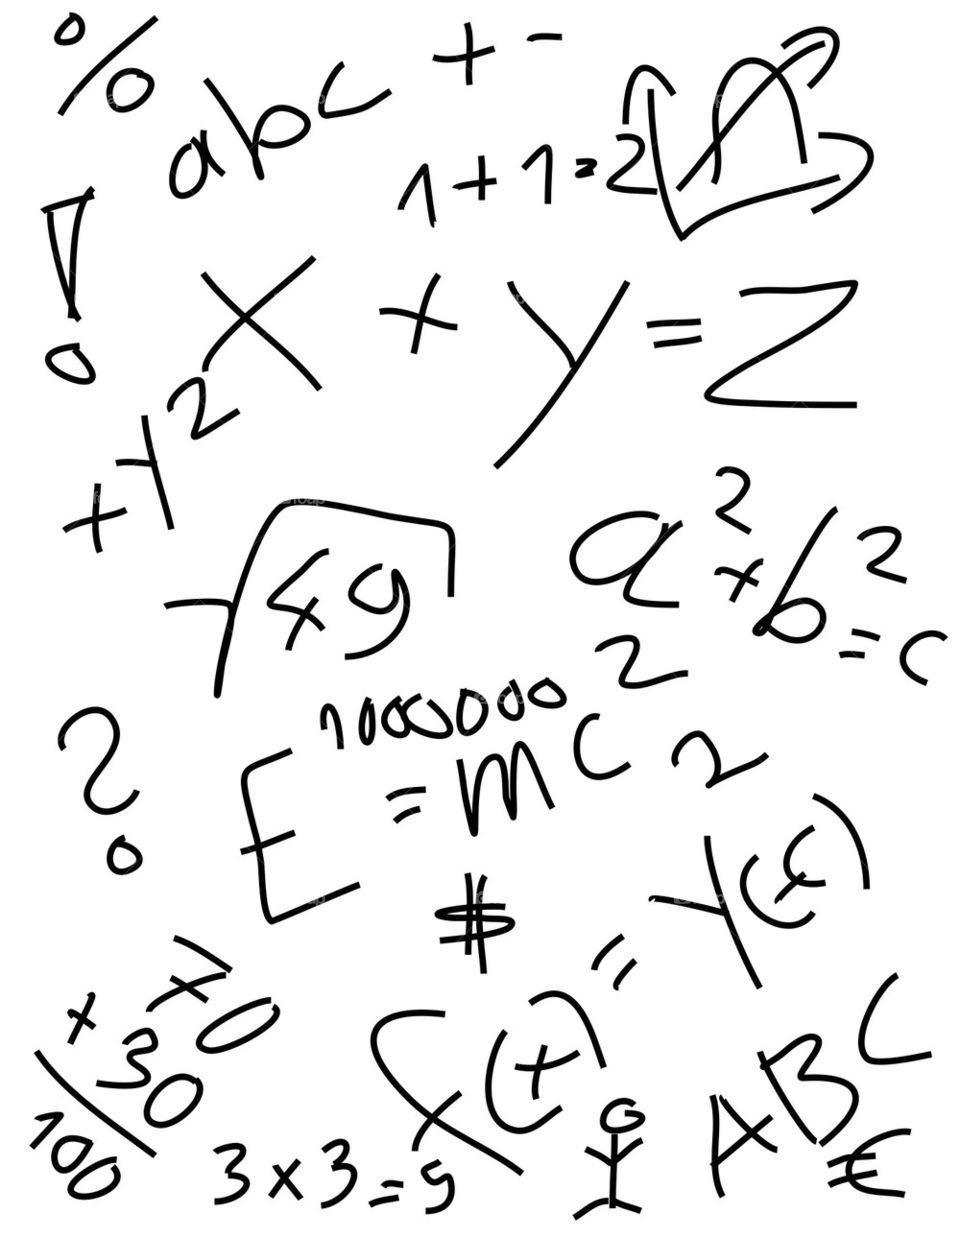 %
abc
+ -
1+1=2
!
x + y = z
+y²
√49
a²+b²=c²
1000000
?
E=mc²
$
x(t)=y(t)
70
+30
100
3x3=9
ABC
€